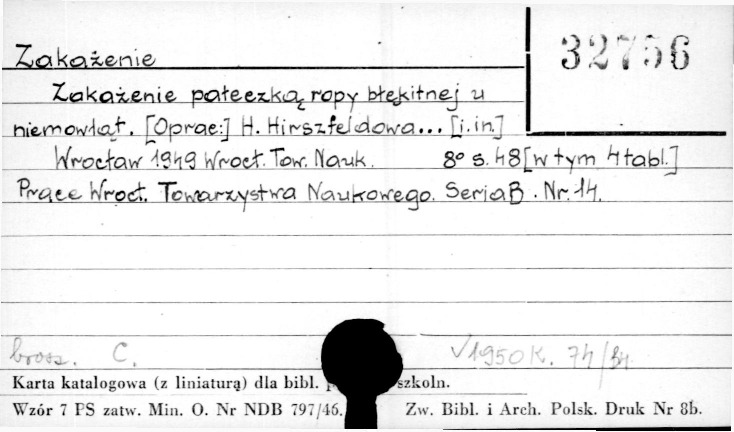 Zakażenie
32756
Zakażenie pałeczką ropy błękitnej u
niemowląt. [Oprac:] H. Hirszfeldowa... [i.in.]
Wrocław 1949 Wrocł. Tow. Nauk. 8° s. 48 [w tym 4 tabl.]
Prace Wrocł. Towarzystwa Naukowego. Seria B. Nr. 14.
brosz. C. √1950 K. 74/
Karta katalogowa (z liniaturą) dla bibl. szkoln.
Wzór 7 PS zatw. Min. O. Nr NDB 797/46. Zw. Bibl. i Arch. Polsk. Druk Nr 8b.